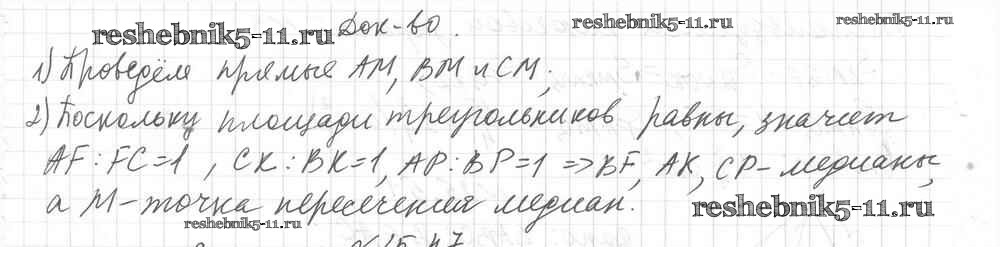 reshebnik5-11.ru Док-во. reshebnik5-11.ru reshebnik5-11.ru
1) Проведём прямые AM, BM и CM;
2) Поскольку площади треугольников равны, значит
AF:FC=1, CK:BK=1, AP:BP=1 => BF, AK, CP - медианы,
а M - точка пересечения медиан. reshebnik5-11.ru
reshebnik5-11.ru